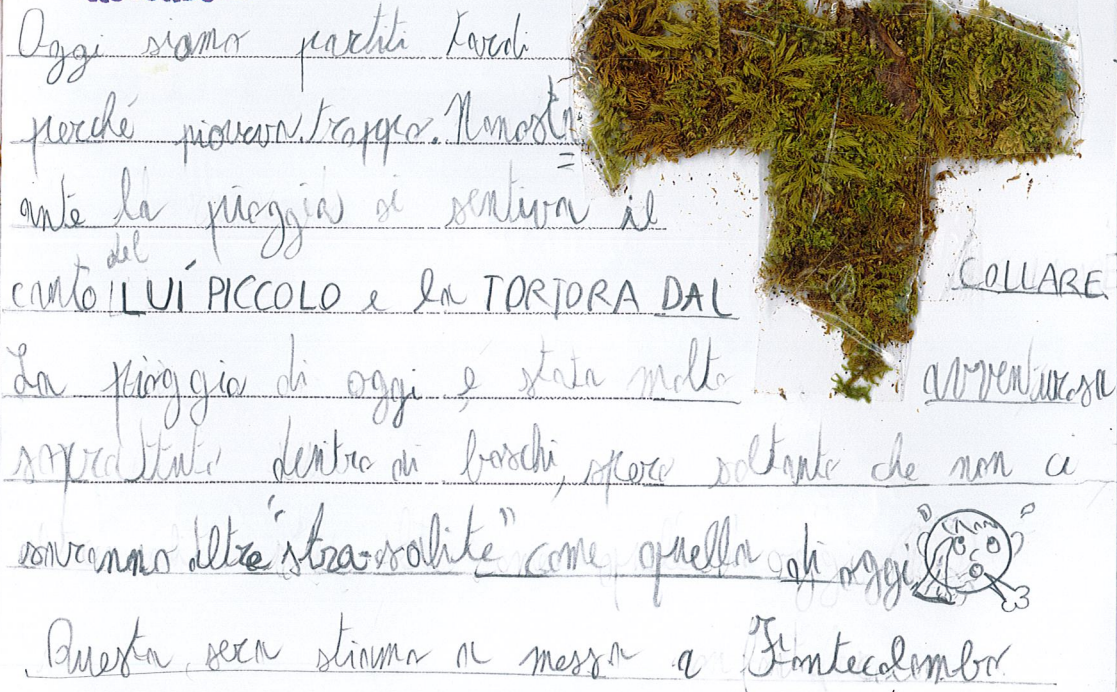 Oggi siamo partiti tardi
perché pioveva troppo. Nonost
ante la pioggia si sentiva il
canto del LUÍ PICCOLO e la TORTORA DAL COLLARE
La pioggia di oggi è stata molto avventurosa
soprattutto dentro ai boschi, spero soltanto che non ci
saranno altre "stra-salite" come quella di oggi
Questa sera stiamo a messa a Fontecolombo